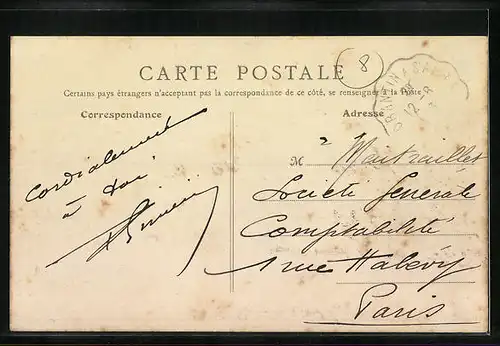 8
CARTE POSTALE
Certains pays étrangers n'acceptant pas la correspondance de ce côté, se renseigner à la Poste
Correspondance
Adresse
Cordialement
à toi
M
Société Générale
Comptabilité
1 rue Halévy
Paris